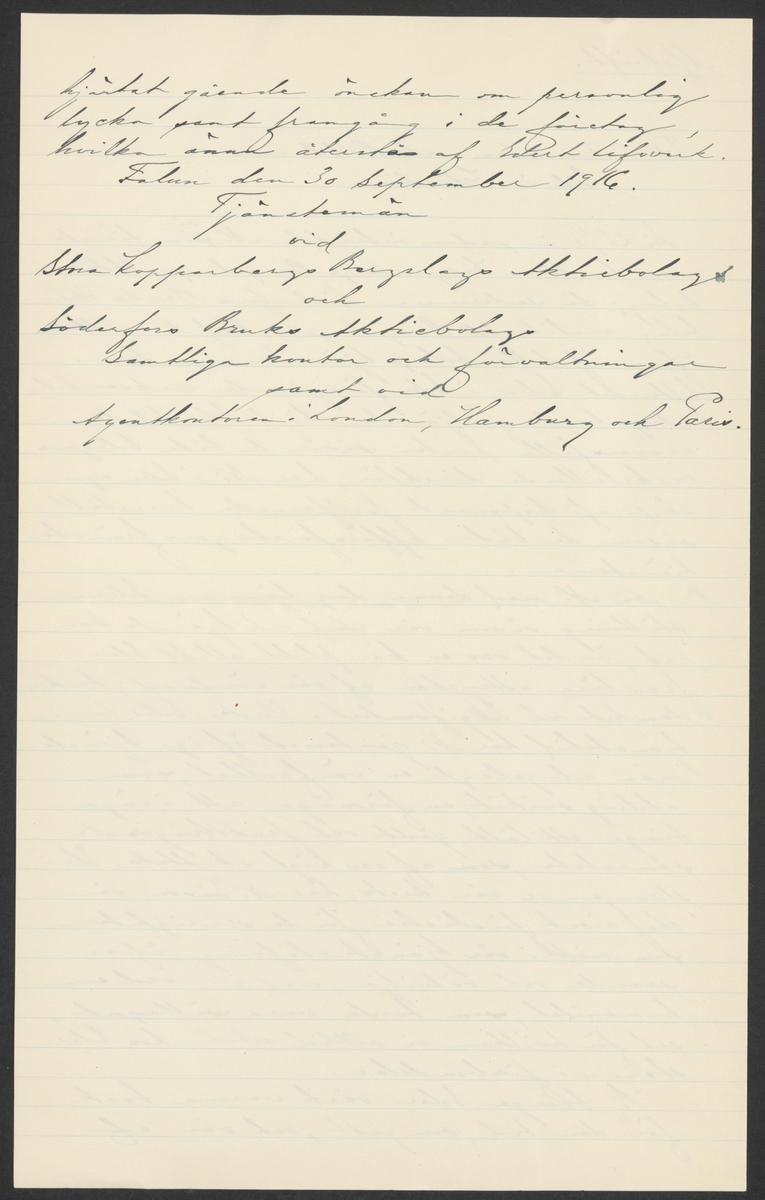 hjärtat gående önskan om personlig
lycka samt framgång i de företag,
hvilka ännu återstå af Edert lifsverk.
Falun den 30 September 1916.
Tjänstemän
vid
Stora Kopparbergs Bergslags Aktiebolags
och
Söderfors Bruks Aktiebolags
Samtliga kontor och förvaltningar
samt vid
Agentkontoren i London, Hamburg och Paris.